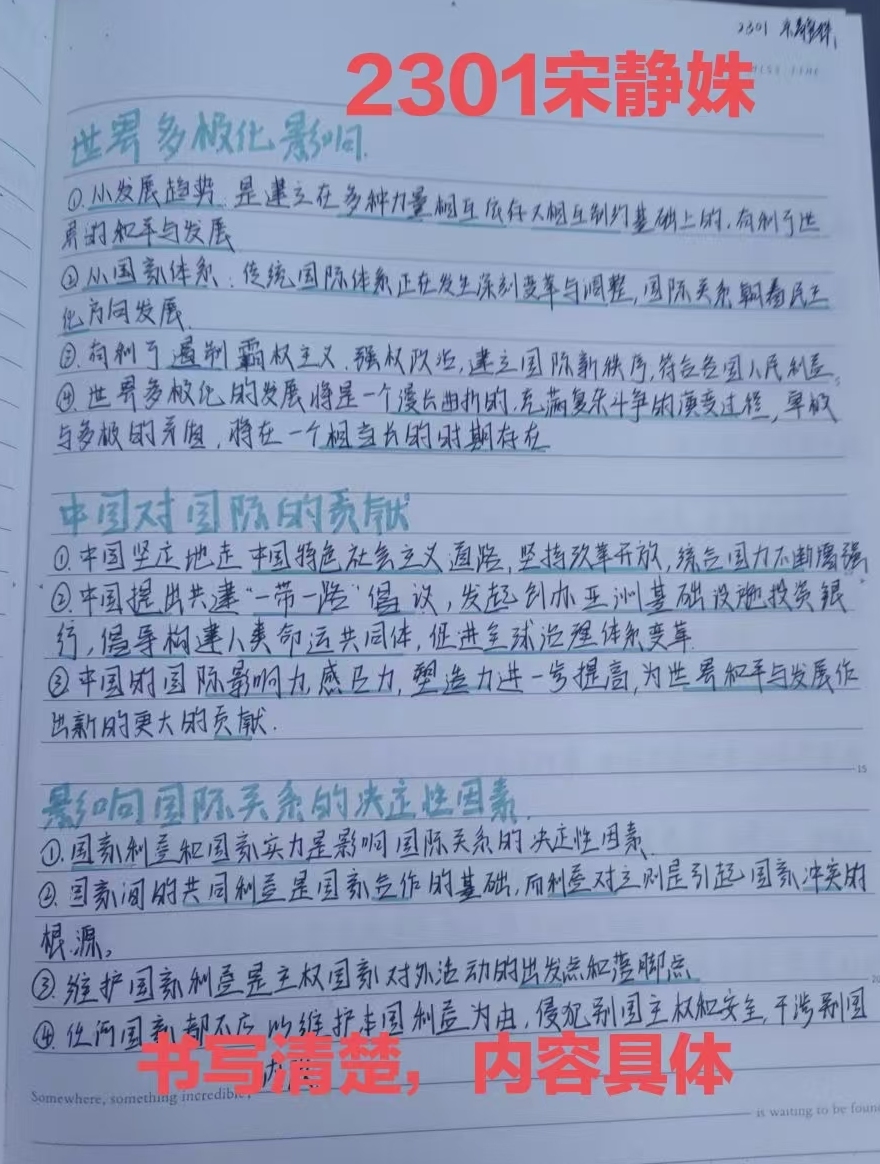 2301 宋静姝
2301宋静姝
世界多极化影响.
①.从发展趋势:是建立在多种力量相互依存又相互制约基础上的,有利于世
界的和平与发展
②从国家体系:传统国际体系正在发生深刻变革与调整,国际关系朝着民主
化方向发展.
③.有利于遏制霸权主义、强权政治,建立国际新秩序,符合各国人民利益。
④.世界多极化的发展将是一个漫长曲折的,充满复杂斗争的演变过程,单极
与多极的矛盾,将在一个相当长的时期存在
中国对国际的贡献
①.中国坚定地走中国特色社会主义道路,坚持改革开放,综合国力不断增强
②.中国提出共建“一带一路”倡议,发起创办亚洲基础设施投资银
行,倡导构建人类命运共同体,促进全球治理体系变革.
③中国的国际影响力,感召力,塑造力进一步提高,为世界和平与发展作
出新的更大的贡献.
影响国际关系的决定性因素.
①.国家利益和国家实力是影响国际关系的决定性因素.
②.国家间的共同利益是国家合作的基础,而利益对立则是引起国家冲突的
根源。
③.维护国家利益是主权国家对外活动的出发点和落脚点
④.任何国家都不应以维护本国利益为由,侵犯别国主权和安全,干涉别国
书写清楚,内容具体
Somewhere, something incredible
is waiting to be foun
15